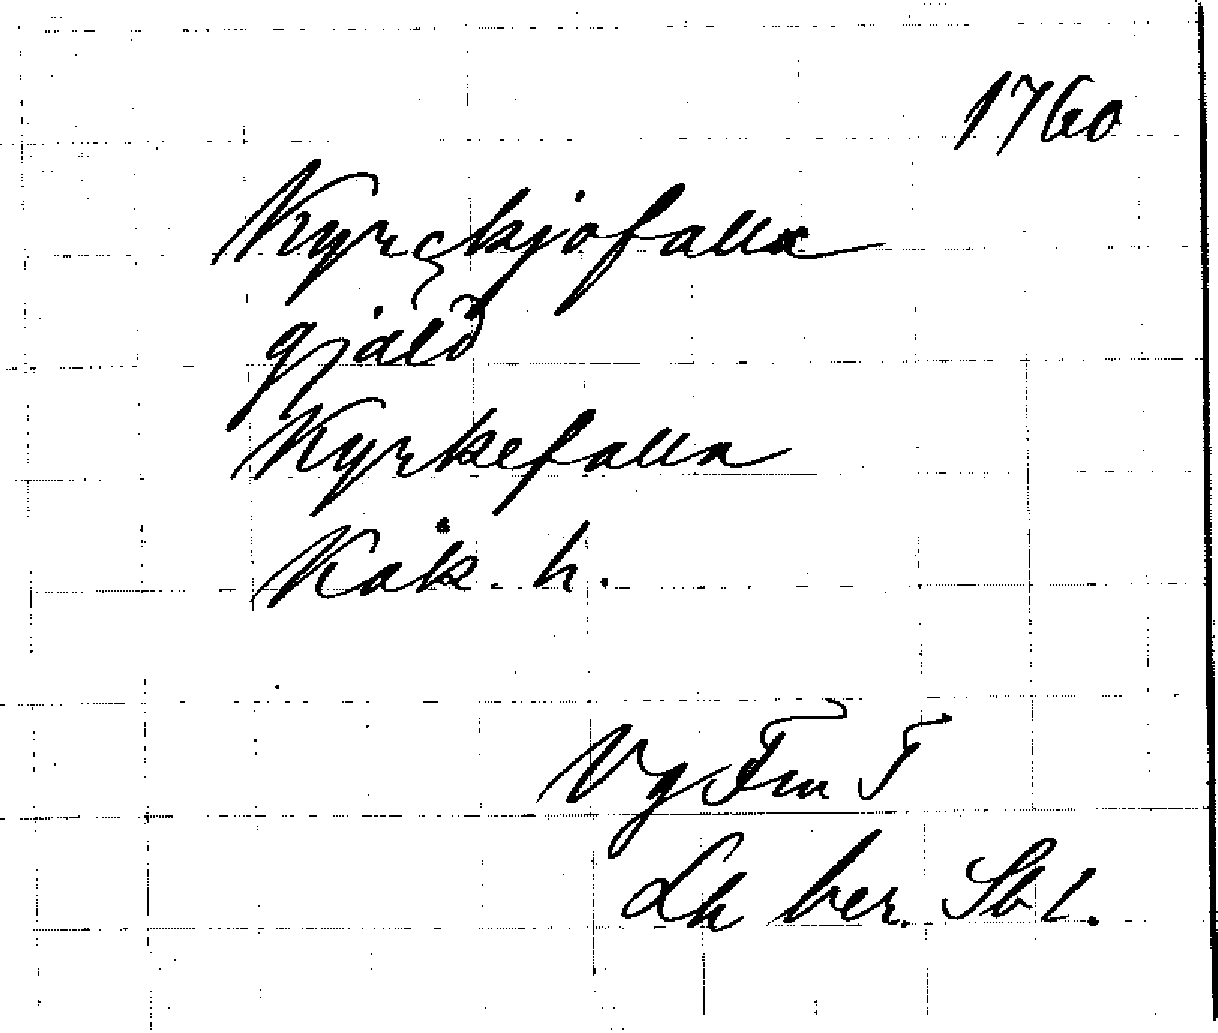 1760
Kyrckjofalla
gjäld
Kyrkefalla
Kåk. h.
Vg Fm T
Lh ber. Sbl.